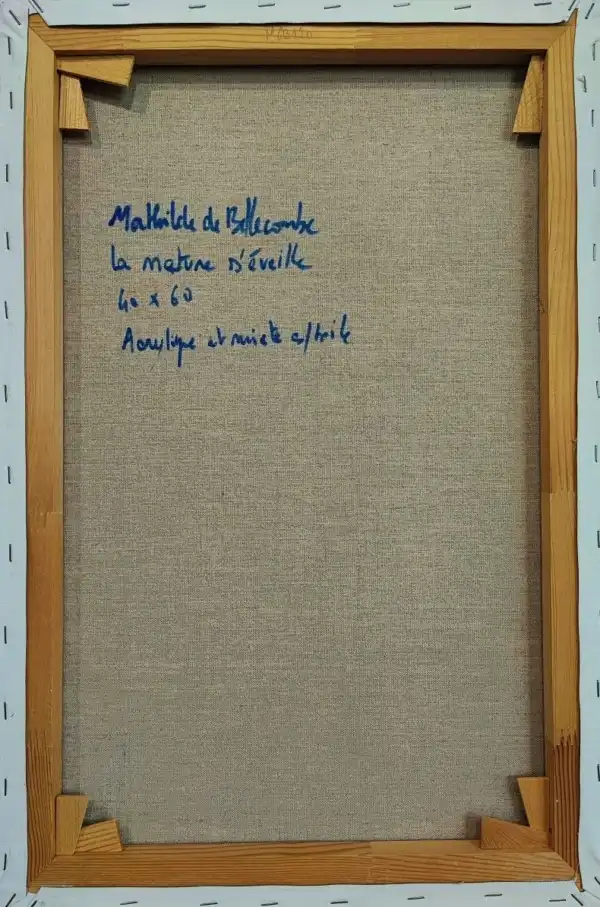 Mathilde de Bellecombe
La nature s'éveille
40 x 60
Acrylique et mixte s/toile